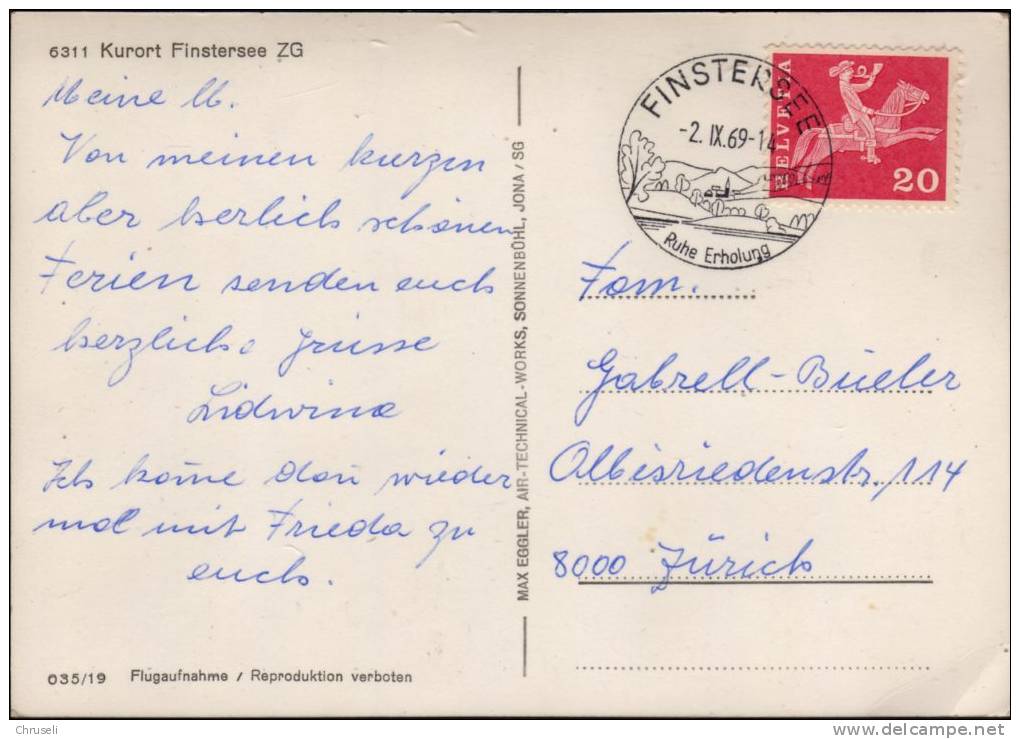 6311 Kurort Finstersee ZG
Meine lb.
Von meinen kurzen
aber herlich schönen
Ferien senden euch
herzliche Grüsse
Lidwina
Ich kome dan wieder
mal mit Frieda zu
euch.
035/19 Flugaufnahme / Reproduktion verboten
MAX EGGLER, AIR-TECHNICAL-WORKS, SONNENBÜHL, JONA / SG
FINSTERSEE
-2.IX.69-14
Ruhe Erholung
HELVETIA
20
Fam.
Gabrell-Büeler
Albisriedenstr. 114
8000 Zürich
Chruseli
www.delcampe.net